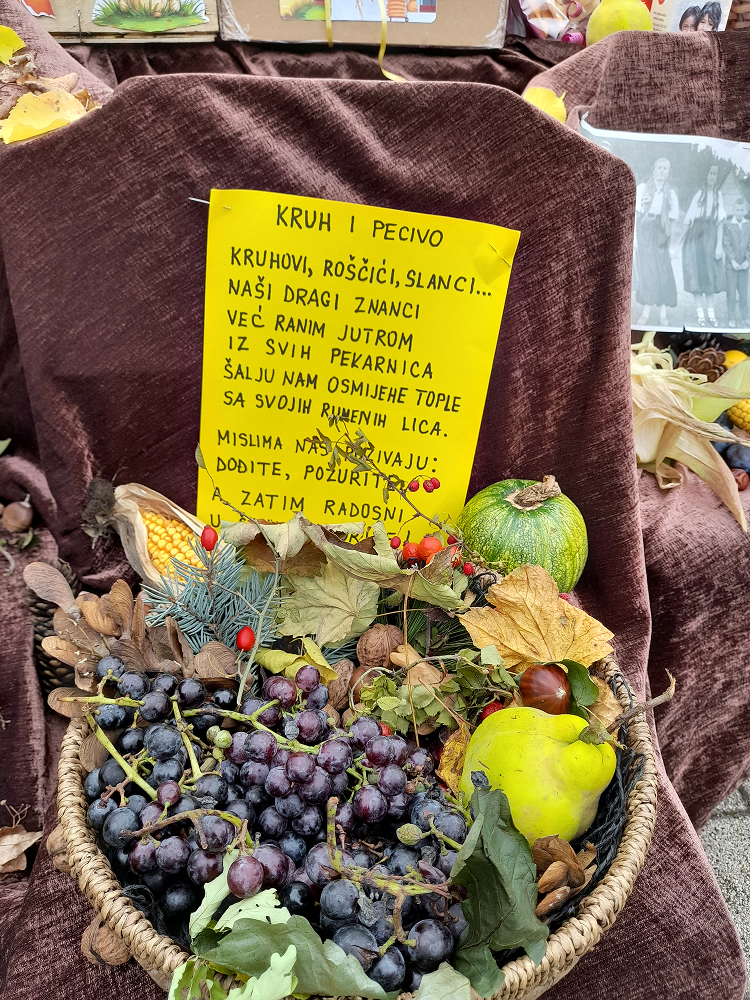 KRUH I PECIVO
KRUHOVI, ROŠČIĆI, SLANCI...
NAŠI DRAGI ZNANCI
VEĆ RANIM JUTROM
IZ SVIH PEKARNICA
ŠALJU NAM OSMIJEHE TOPLE
SA SVOJIH RUMENIH LICA.
MISLIMA NAS POZIVAJU:
DOĐITE, POŽURITE
A ZATIM RADOSNI
U